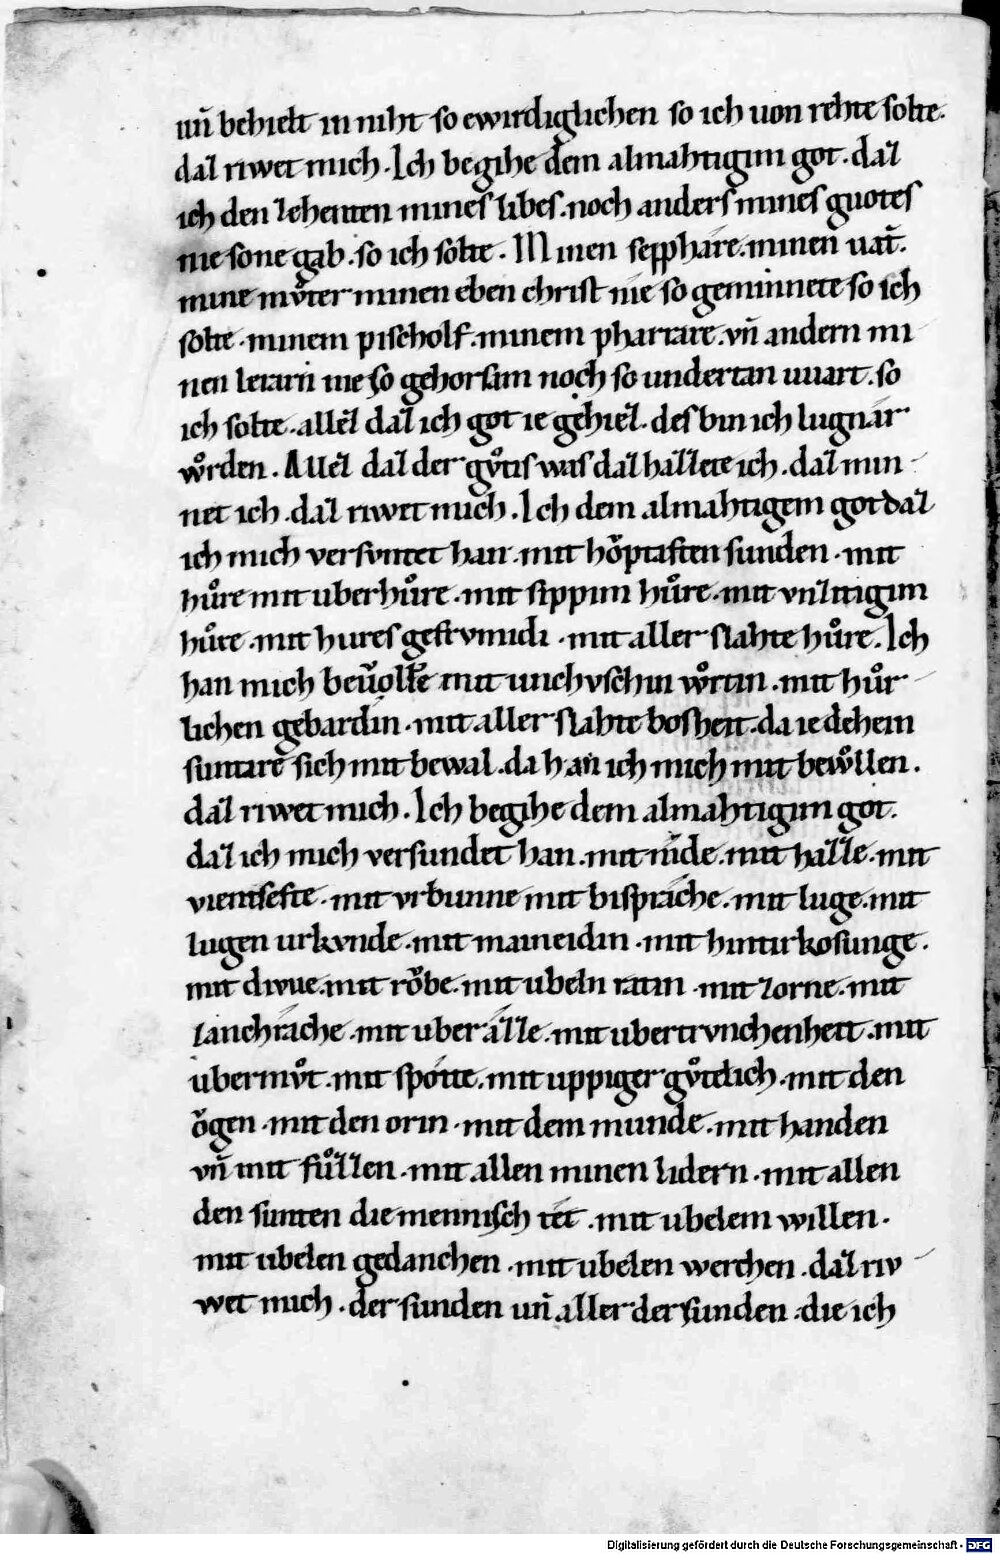 uñ behielt in niht so ewirdiglichen so ich uon rehte solte.
daz riwet mich. Ich begihe dem almahtigim got. daz
ich den zehenten mines libes. noch anders mines guotes
nie sone gab. so ich solte. Minen sepphare. minen uat̄.
mine mv̊ter minen eben christ nie so geminnete so ich
solte. minem pischolf. minem pharrare. vñ andern mi
nen lerarn nie so gehorsam noch so undertan uuart. so
ich solte. allez daz ich got ie gehiez. des bin ich lugnar
wo̊rden. Allez daz der gv̊tis was daz hazzete ich. daz min
net ich. daz riwet mich. Ich dem almahtigem got daz
ich mich versvntet han. mit ho̊ptaften sunden. mit
hůre mit uberhůre. mit sippim hůre. mit vnzitigim
hůre. mit hures gefrvmidi. mit aller slahte hůre. Ich
han mich mit unchvschin wo̊rtin. mit hůr
lichen gebardin. mit aller slahte bosheit. da ie dehein
suntare sich mit bewal. da han ich mich mit bewo̊llen.
daz riwet mich. Ich begihe dem almahtigim got.
daz ich mich versundet han. mit nide. mit hazze. mit
vientsefte. mit vrbunne mit bisprache. mit luge. mit
lugen urkvnde. mit maineidin. mit hintirkosunge.
mit divue. mit ro̊be. mit ubeln ratin. mit zorne. mit
lanchrache. mit uber azze. mit ubertrvnchenheit. mit
ubermv̊t. mit spotte. mit uppiger gv̊telich. mit den
o̊gen. mit den orin. mit dem munde. mit handen
vñ mit fůzzen. mit allen minen lidern. mit allen
den sunten die mennisch tet. mit ubelem willen.
mit ubelen gedanchen. mit ubelen werchen. daz riv
wet mich. der sunden uñ aller der sunden. die ich
Digitalisierung gefördert durch die Deutsche Forschungsgemeinschaft - DFG